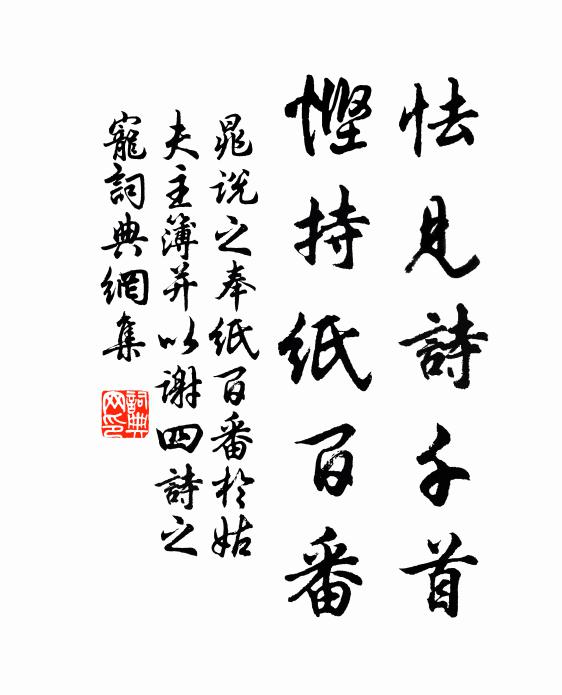 怯見詩千首
慳持紙百番
晁說之奉紙百番於姑
夫主簿并以謝四詩之
寵詞典網集
詞典
网印